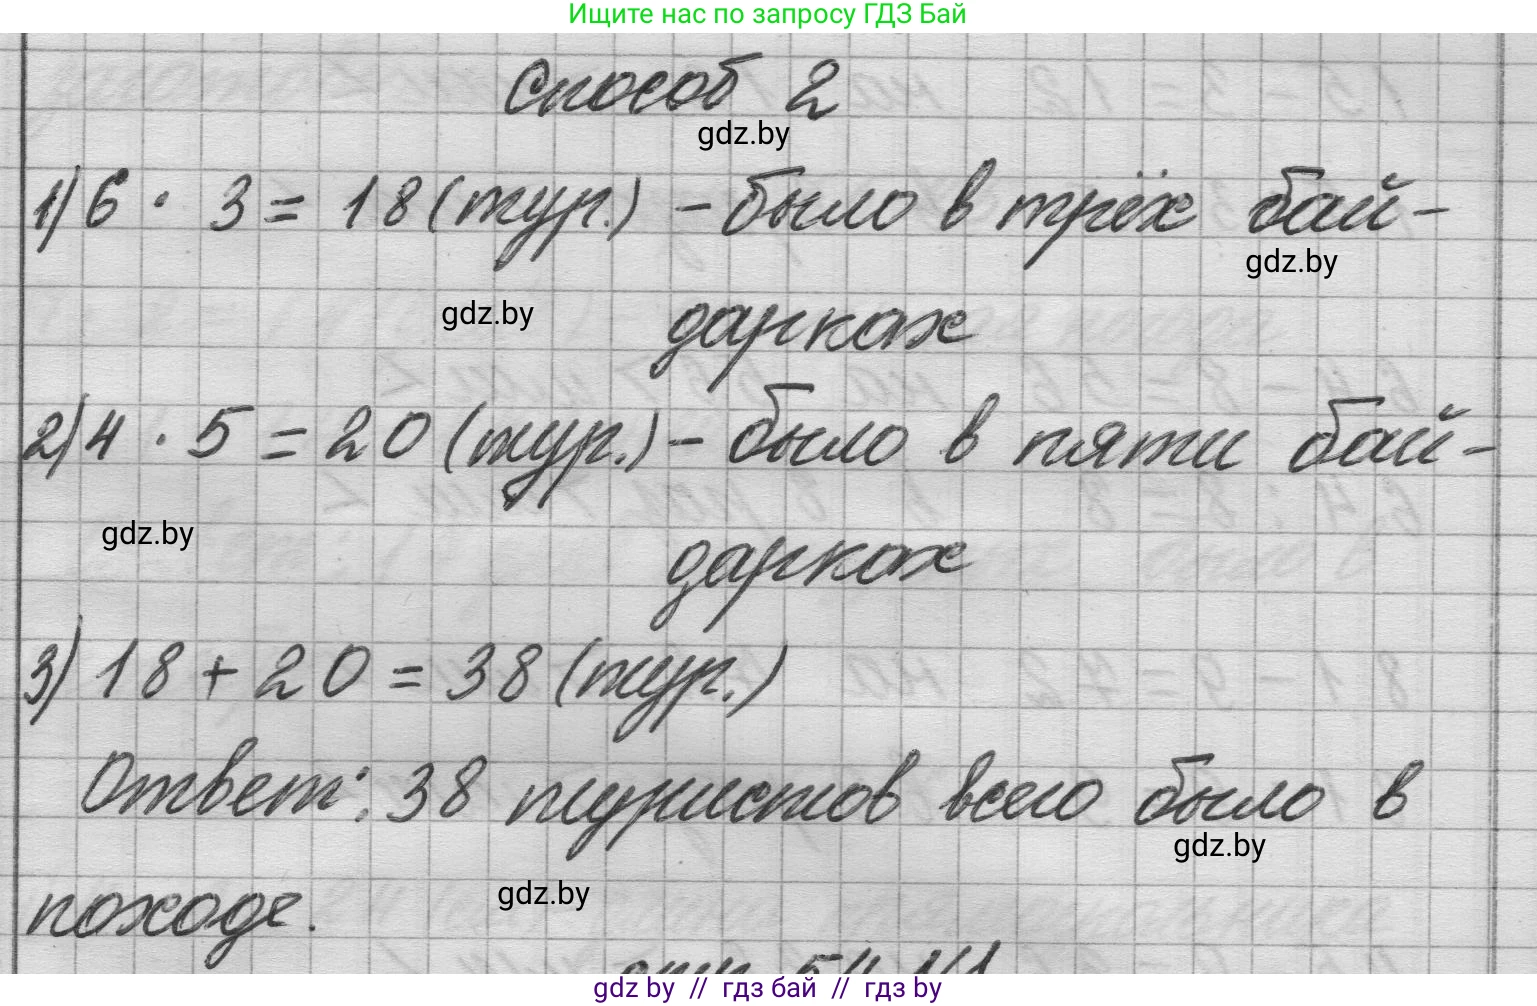 Ищите нас по запросу ГДЗ Бай
Способ 2
gdz.by
1) 6 · 3 = 18 (тур.) - было в трёх бай-
gdz.by
gdz.by
дарках
2) 4 · 5 = 20 (тур.) - было в пяти бай-
gdz.by
дарках
3) 18 + 20 = 38 (тур.)
Ответ: 38 туристов всего было в
gdz.by
походе.
gdz.by
gdz by // гдз бай // гдз by